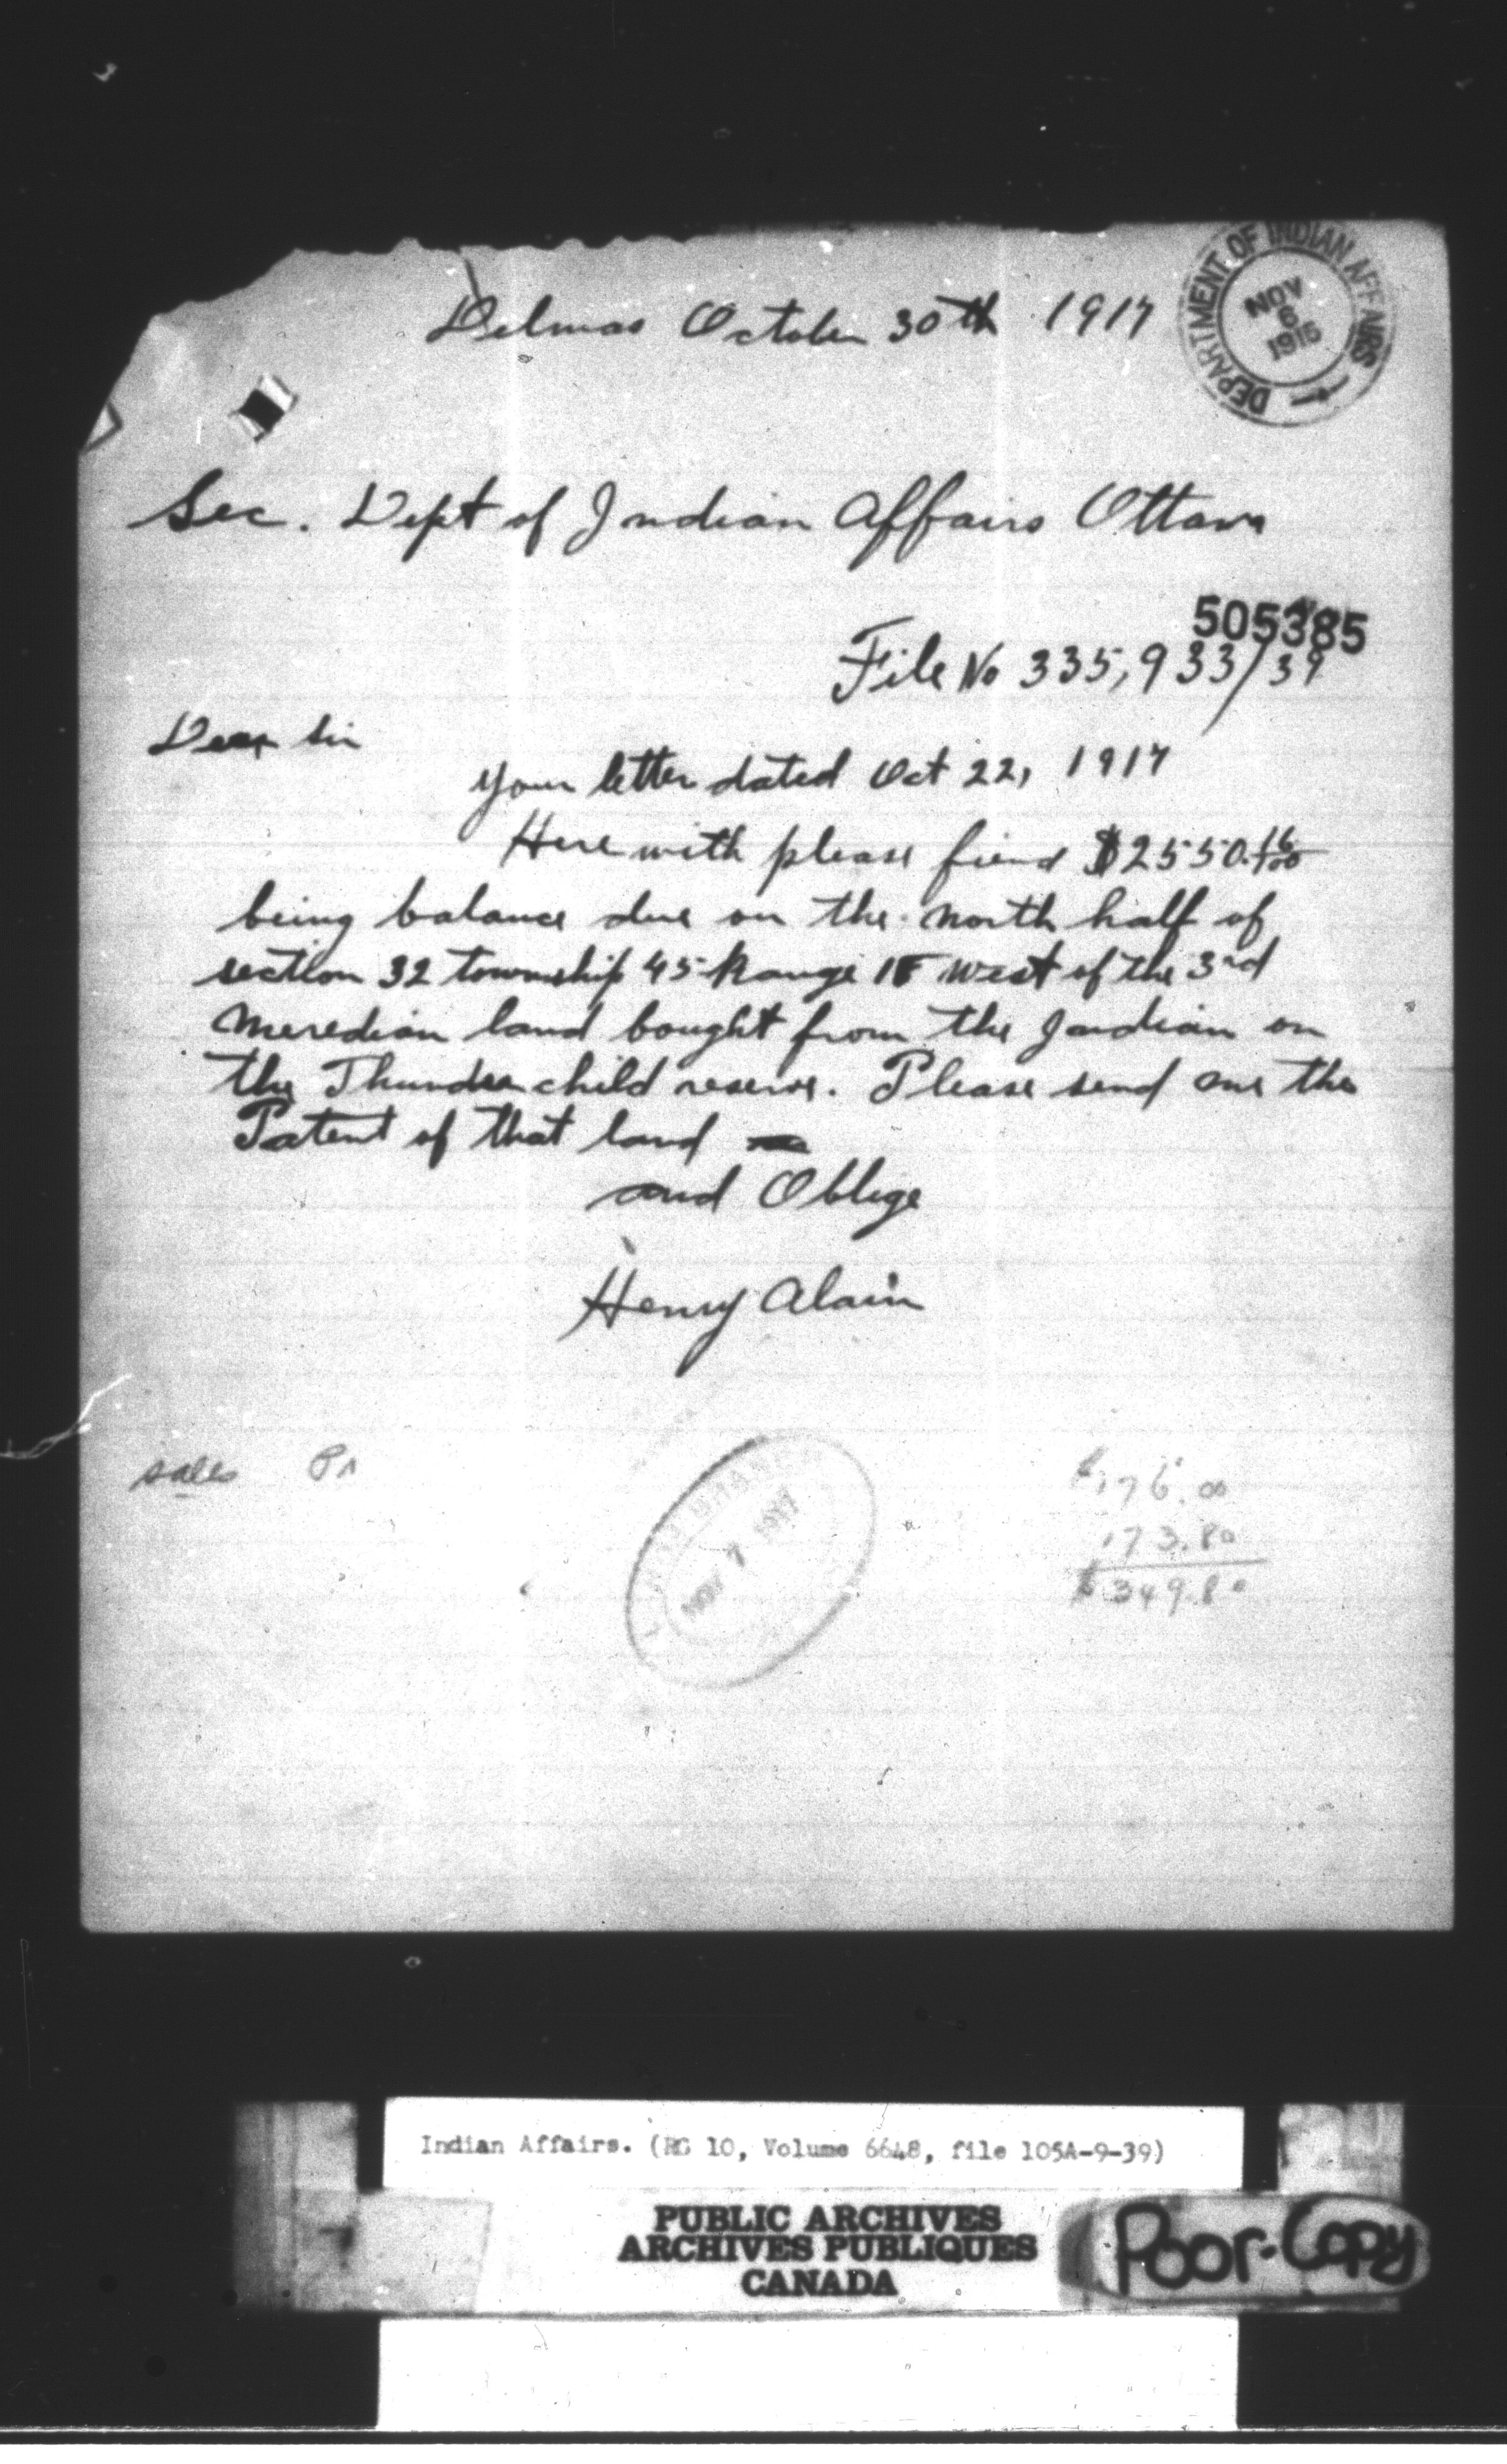 Delmas October 30th 1917
DEPARTMENT OF INDIAN AFFAIRS
NOV
6
1916
Sec. Dept of Indian Affairs Ottawa
505385
File No 335,933/39
Dear Sir
Your letter dated Oct 22, 1917
Here with please fiend $2550.16/100
being balance due on the North half of
section 32 township 45 Range 18 West of the 3rd
Meredian land bought from the Indian on
the Thunderchild reserve. Please send me the
Patent of that land
and Oblige
Henry Alain
sales
$176.00
173.80
$349.80
NOV 7 1917
Indian Affairs. (RG 10, Volume 6648, file 105A-9-39)
PUBLIC ARCHIVES
ARCHIVES PUBLIQUES
CANADA
Poor-Copy